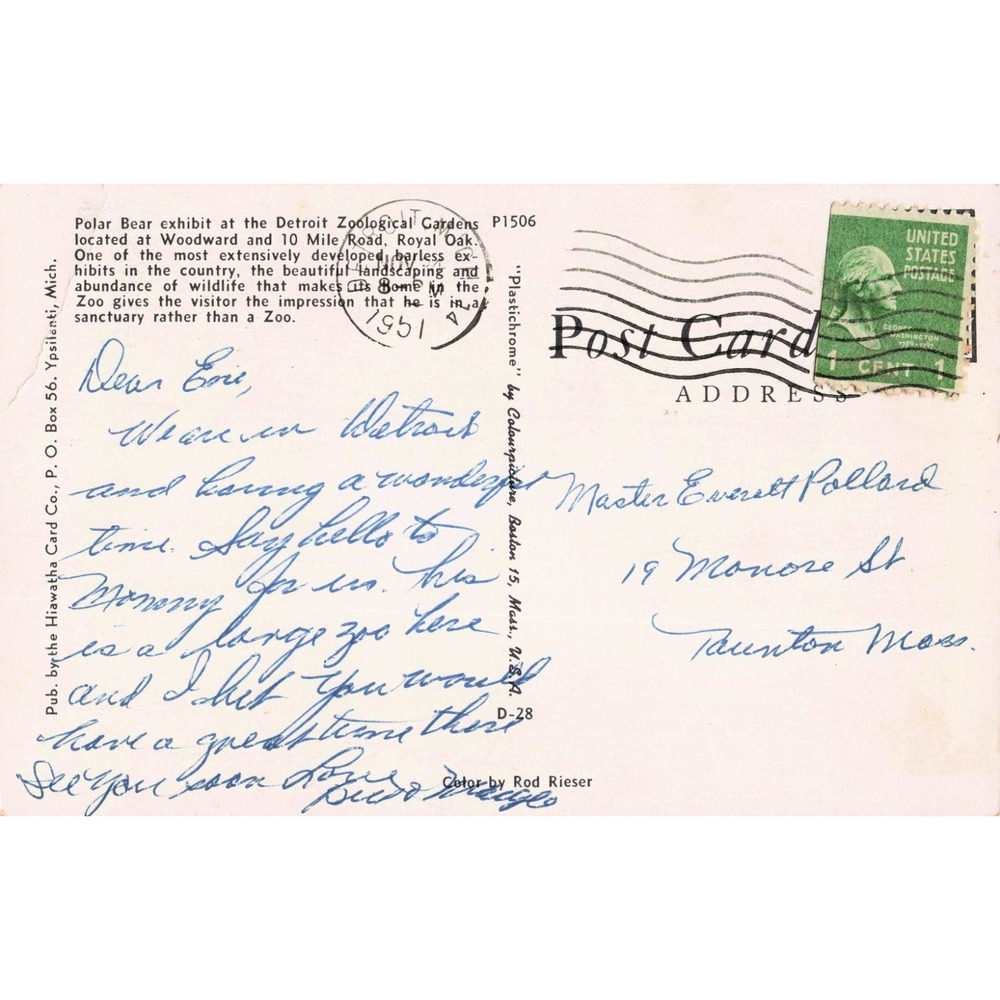 Polar Bear exhibit at the Detroit Zoological Gardens
located at Woodward and 10 Mile Road, Royal Oak.
One of the most extensively developed barless ex-
hibits in the country, the beautiful landscaping and
abundance of wildlife that makes its home in the
Zoo gives the visitor the impression that he is in a
sanctuary rather than a Zoo.
P1506
Pub. by the Hiawatha Card Co., P. O. Box 56. Ypsilanti, Mich.
Dear Eve,
We are in Detroit
and having a wonderful
time. Say hello to
Mommy for us. his
is a large zoo here
and I bet you would
have a great time there
See you soon Love
"Plastichrome" by Colourpicture, Boston 15, Mass., U.S.A.
D-28
Color by Rod Rieser
DETROIT MICH. 14
JUN
8 PM
1951
UNITED
STATES
POSTAGE
GEORGE
WASHINGTON
1 CENT 1
Post Card
ADDRESS
Master Everett Pollard
19 Monore St.
Taunton Mass.